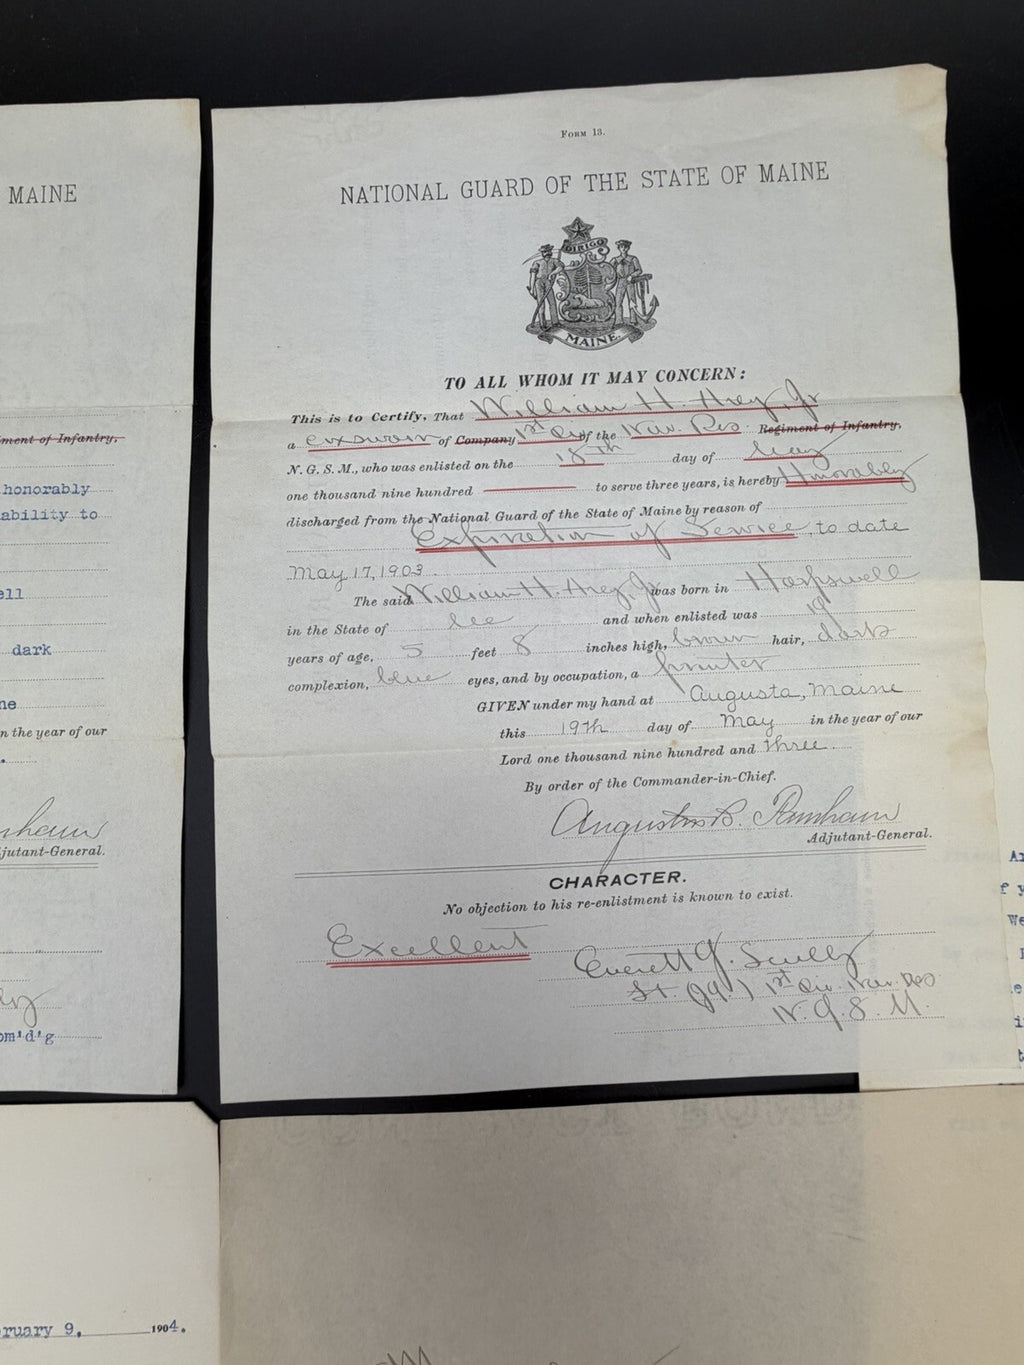 MAINE
ment of Infantry,
honorably
ability to
ell
dark
ne
n the year of our
nham
djutant-General.
om'd'g
ruary 9, 1904.
Form 13.
NATIONAL GUARD OF THE STATE OF MAINE
DIRIGO
MAINE.
TO ALL WHOM IT MAY CONCERN:
This is to Certify, That William H. Arey, Jr
a coxswain of Company 1st Div of the Nav. Res Regiment of Infantry,
N. G. S. M., who was enlisted on the 18th day of May
one thousand nine hundred to serve three years, is hereby Honorably
discharged from the National Guard of the State of Maine by reason of
Expiration of Service, to date
May 17, 1903.
The said William H. Arey, Jr was born in Harpswell
in the State of Me and when enlisted was 19
years of age, 5 feet 8 inches high, brown hair, dark
complexion, blue eyes, and by occupation, a printer
GIVEN under my hand at Augusta, Maine
this 19th day of May in the year of our
Lord one thousand nine hundred and three.
By order of the Commander-in-Chief.
Augustus B. Farnham
Adjutant-General.
CHARACTER.
No objection to his re-enlistment is known to exist.
Excellent
Everett G. Scully
Lt. (Jg.) 1st Div. Nav. Res
N. G. S. M.